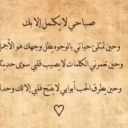 صباحي لا يكتمل إلا بك
وحين تمتلئ حياتي بالوجوه يظل وجهك هو الأجمل
وحين تغمرني الكلمات لا يصيب قلبي سوى حديثك
وحين يطرق الحب أبوابي لا يفتح قلبي إلا لك وحدك